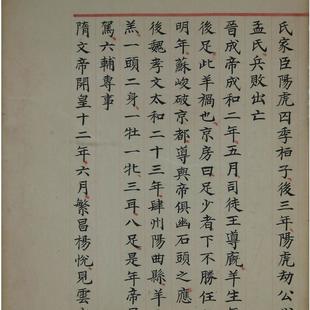 氏家臣陽虎囚季桓子後三年陽虎劫公
孟氏兵敗出亡
晉成帝咸和二年五月司徒王導廄羊生
後足此羊禍也京房曰足少者下不勝任
明年蘇峻破京都導與帝俱幽石頭之應
後魏孝文太和二十三年肆州陽曲縣羊
羔一頭二身一牡一牝三耳八足是年帝
駕六輔專事
隋文帝開皇十二年六月繁昌楊悅見雲